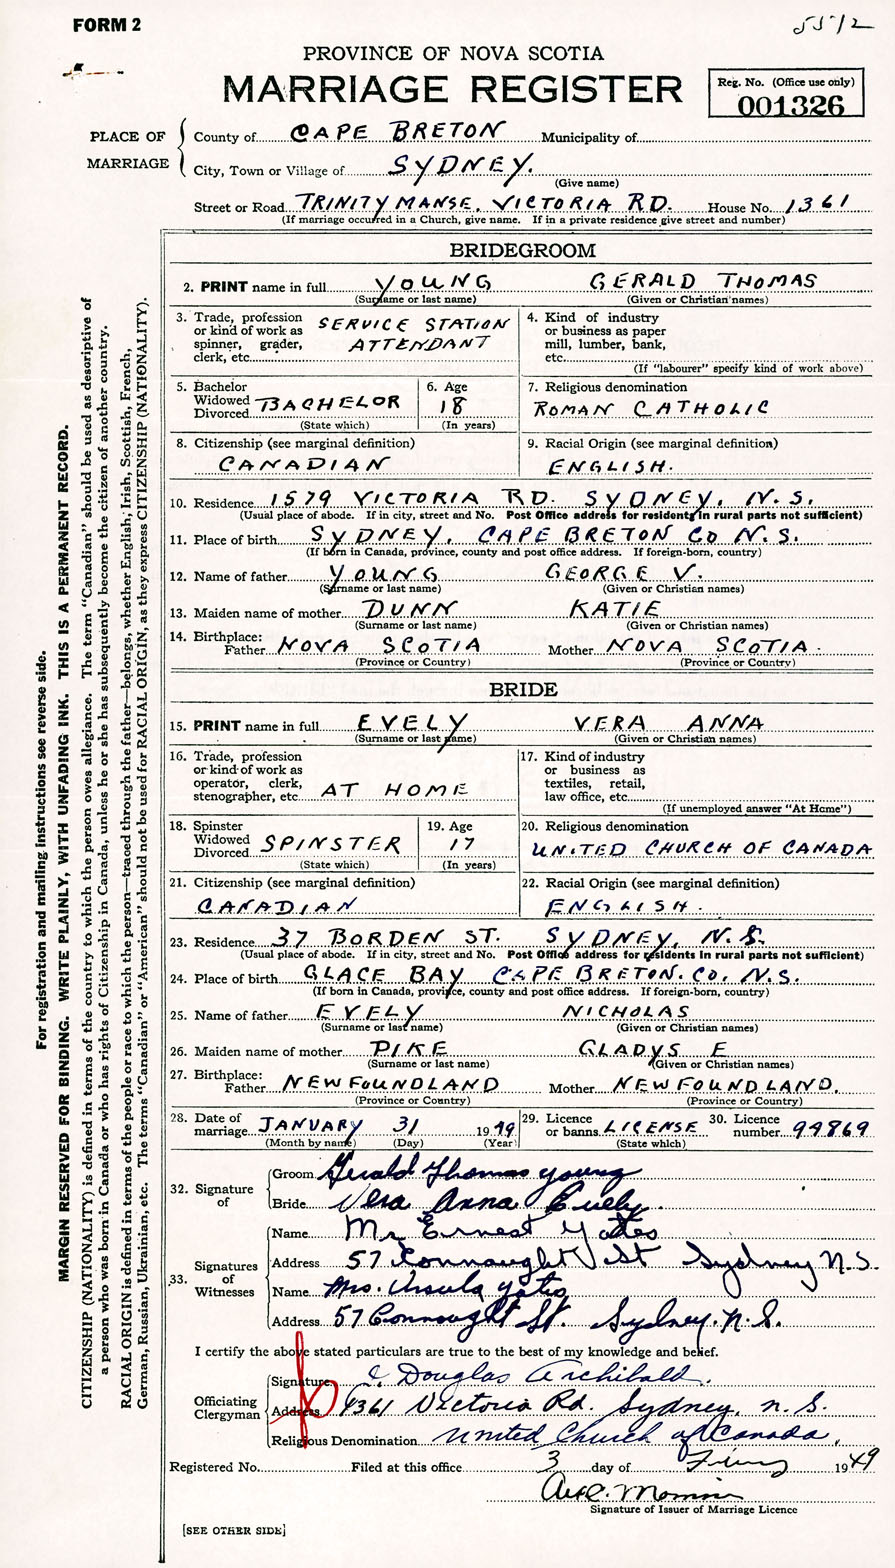 FORM 2
5572
PROVINCE OF NOVA SCOTIA
MARRIAGE REGISTER
Reg. No. (Office use only)
001326
PLACE OF MARRIAGE
County of CAPE BRETON Municipality of
City, Town or Village of SYDNEY.
(Give name)
Street or Road TRINITY MANSE, VICTORIA RD. House No. 1361
(If marriage occurred in a Church, give name. If in a private residence give street and number)
BRIDEGROOM
2. PRINT name in full YOUNG GERALD THOMAS
(Surname or last name) (Given or Christian names)
3. Trade, profession or kind of work as spinner, grader, clerk, etc. SERVICE STATION ATTENDANT
4. Kind of industry or business as paper mill, lumber, bank, etc.
(If "labourer" specify kind of work above)
5. Bachelor Widowed Divorced BACHELOR
(State which)
6. Age 18
(In years)
7. Religious denomination
ROMAN CATHOLIC
8. Citizenship (see marginal definition)
CANADIAN
9. Racial Origin (see marginal definition)
ENGLISH.
10. Residence 1579 VICTORIA RD. SYDNEY, N.S.
(Usual place of abode. If in city, street and No. Post Office address for residents in rural parts not sufficient)
11. Place of birth SYDNEY, CAPE BRETON CO N.S.
(If born in Canada, province, county and post office address. If foreign-born, country)
12. Name of father YOUNG GEORGE V.
(Surname or last name) (Given or Christian names)
13. Maiden name of mother DUNN KATIE
(Surname or last name) (Given or Christian names)
14. Birthplace:
Father NOVA SCOTIA Mother NOVA SCOTIA.
(Province or Country) (Province or Country)
BRIDE
15. PRINT name in full EVELY VERA ANNA
(Surname or last name) (Given or Christian names)
16. Trade, profession or kind of work as operator, clerk, stenographer, etc. AT HOME
17. Kind of industry or business as textiles, retail, law office, etc.
(If unemployed answer "At Home")
18. Spinster Widowed Divorced SPINSTER
(State which)
19. Age 17
(In years)
20. Religious denomination
UNITED CHURCH OF CANADA
21. Citizenship (see marginal definition)
CANADIAN
22. Racial Origin (see marginal definition)
ENGLISH.
23. Residence 37 BORDEN ST. SYDNEY, N.S.
(Usual place of abode. If in city, street and No. Post Office address for residents in rural parts not sufficient)
24. Place of birth GLACE BAY CAPE BRETON. CO. N.S.
(If born in Canada, province, county and post office address. If foreign-born, country)
25. Name of father EVELY NICHOLAS
(Surname or last name) (Given or Christian names)
26. Maiden name of mother PIKE GLADYS E
(Surname or last name) (Given or Christian names)
27. Birthplace:
Father NEWFOUNDLAND Mother NEWFOUNDLAND.
(Province or Country) (Province or Country)
28. Date of marriage JANUARY 31 1949
(Month by name) (Day) (Year)
29. Licence or banns LICENSE
(State which)
30. Licence number 94869
32. Signature of
Groom Gerald Thomas Young
Bride Vera Anna Evely.
33. Signatures of Witnesses
Name Mr Ernest Yates
Address 57 Connaught St Sydney N.S.
Name Mrs. Ursula Yates
Address 57 Connaught St. Sydney. N.S.
I certify the above stated particulars are true to the best of my knowledge and belief.
Officiating Clergyman
Signature Douglas Archibald.
Address 1361 Victoria Rd. Sydney, N.S.
Religious Denomination United Church of Canada.
Registered No. Filed at this office 3 day of 1949
Signature of Issuer of Marriage Licence
[SEE OTHER SIDE]
For registration and mailing instructions see reverse side.
MARGIN RESERVED FOR BINDING. WRITE PLAINLY, WITH UNFADING INK. THIS IS A PERMANENT RECORD.
CITIZENSHIP (NATIONALITY) is defined in terms of the country to which the person owes allegiance. The term "Canadian" should be used as descriptive of
a person who was born in Canada or who has rights of Citizenship in Canada, unless he or she has subsequently become the citizen of another country.
RACIAL ORIGIN is defined in terms of the people or race to which the person—traced through the father—belongs, whether English, Irish, Scottish, French,
German, Russian, Ukrainian, etc. The terms "Canadian" or "American" should not be used for RACIAL ORIGIN, as they express CITIZENSHIP (NATIONALITY).